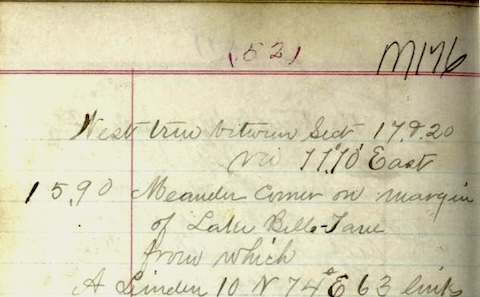 (52)
M176
West true between Sect 17 & 20
Var 11°10' East
15.90 Meander Corner on margin
of Lake Belle-Taue
from which
A Linden 10 N 74° E 63 links